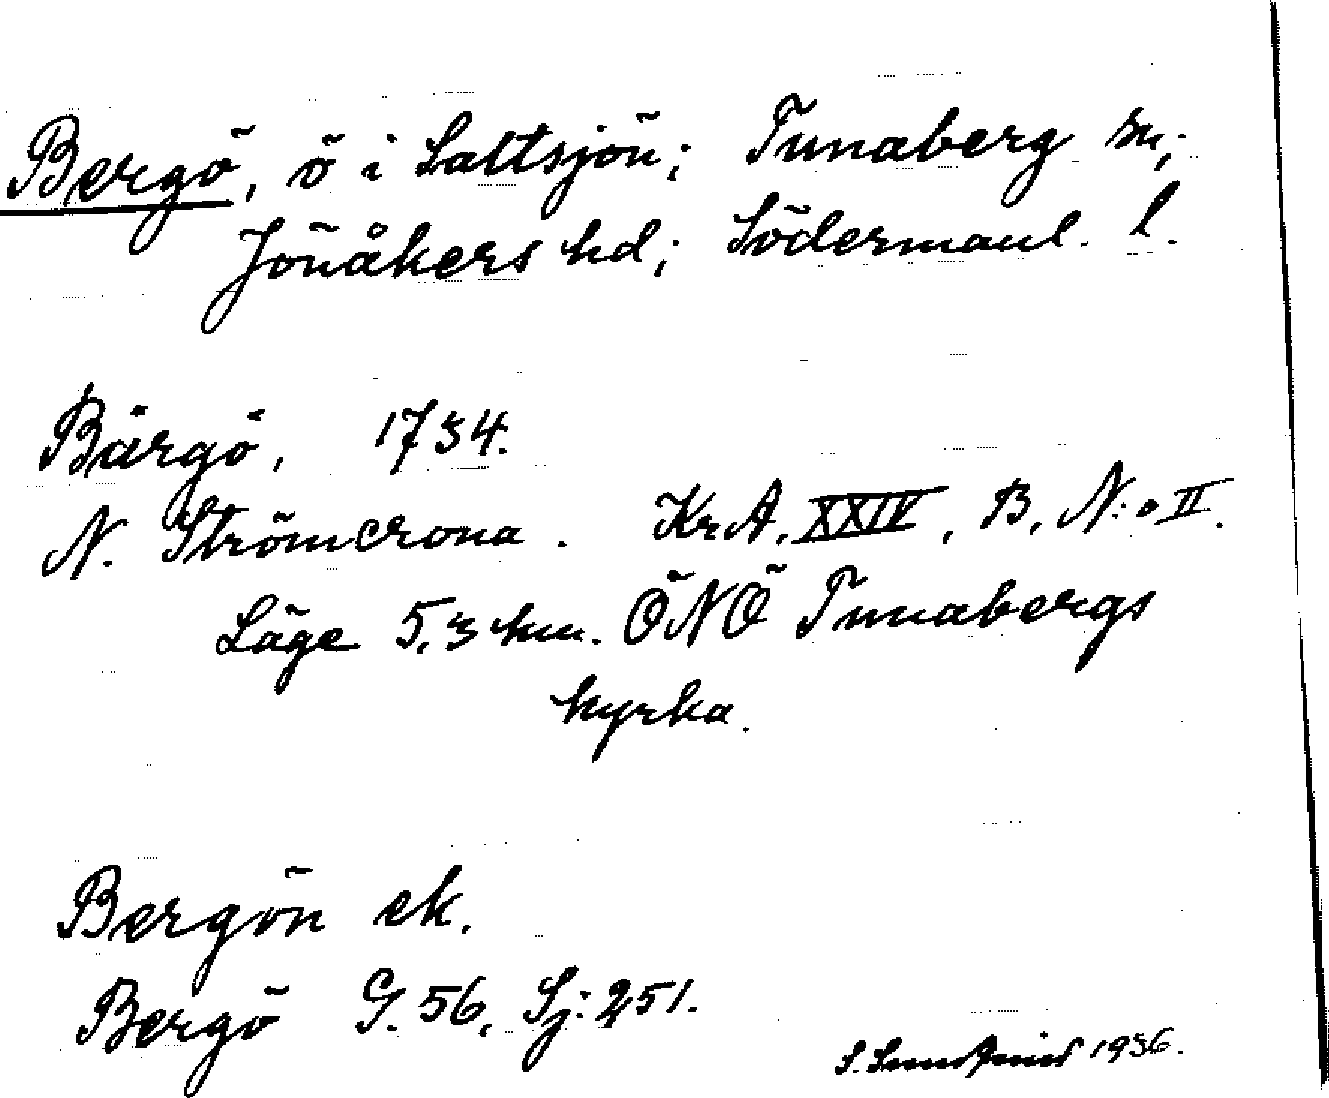 Bergö, ö i Saltsjön; Tunaberg sn;
Jönåkers hd; Södermanl. l.
Bärgö, 1734.
N. Strömcrona. Kr.A. XXIV, B, N:o II.
Läge 5,3 km. ÖNÖ Tunabergs
kyrka.
Bergön ek.
Bergö G. 56, Sj: 251.
S. 1936.